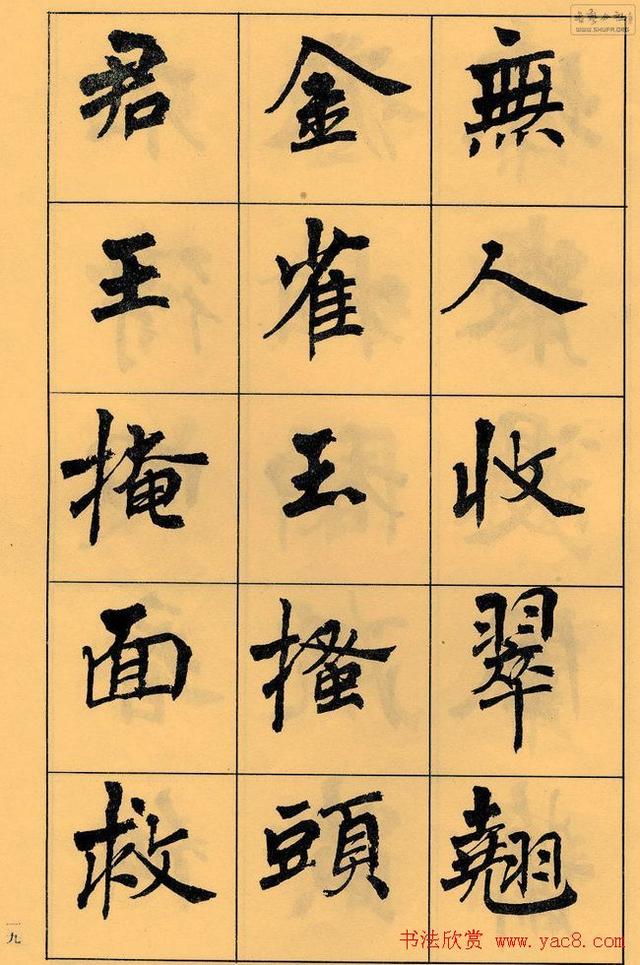 無人收翠翹
金雀玉搔頭
君王掩面救
一九
书法欣赏 www.yac8.com
WWW.SHUFA.ORG